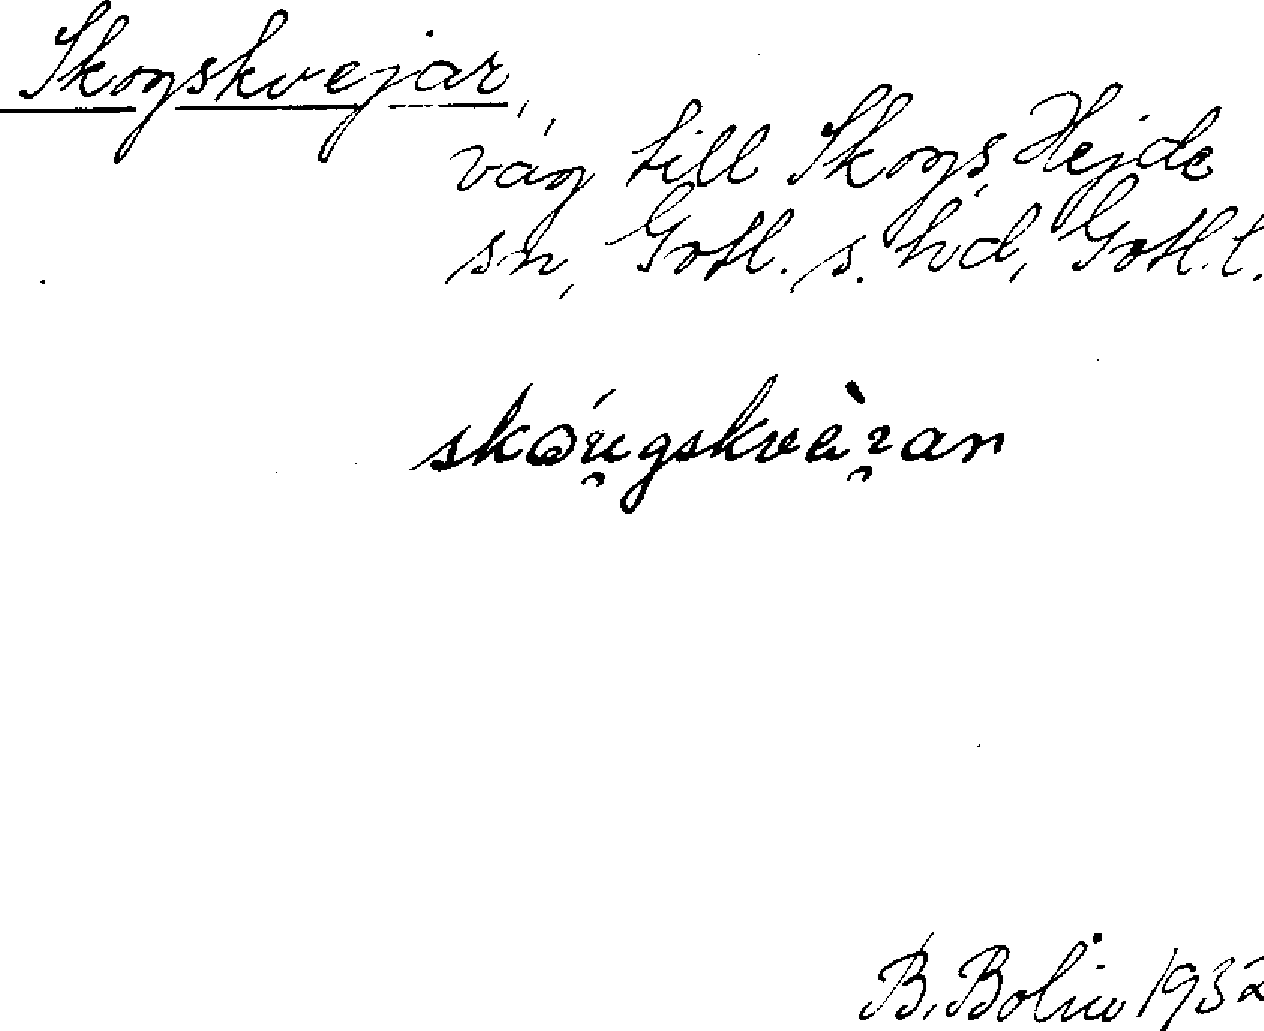 Skogskvejar,
väg till Skogs, Hejde
sn, Gotl. s. hd, Gotl. l.
B. Bolin 1932